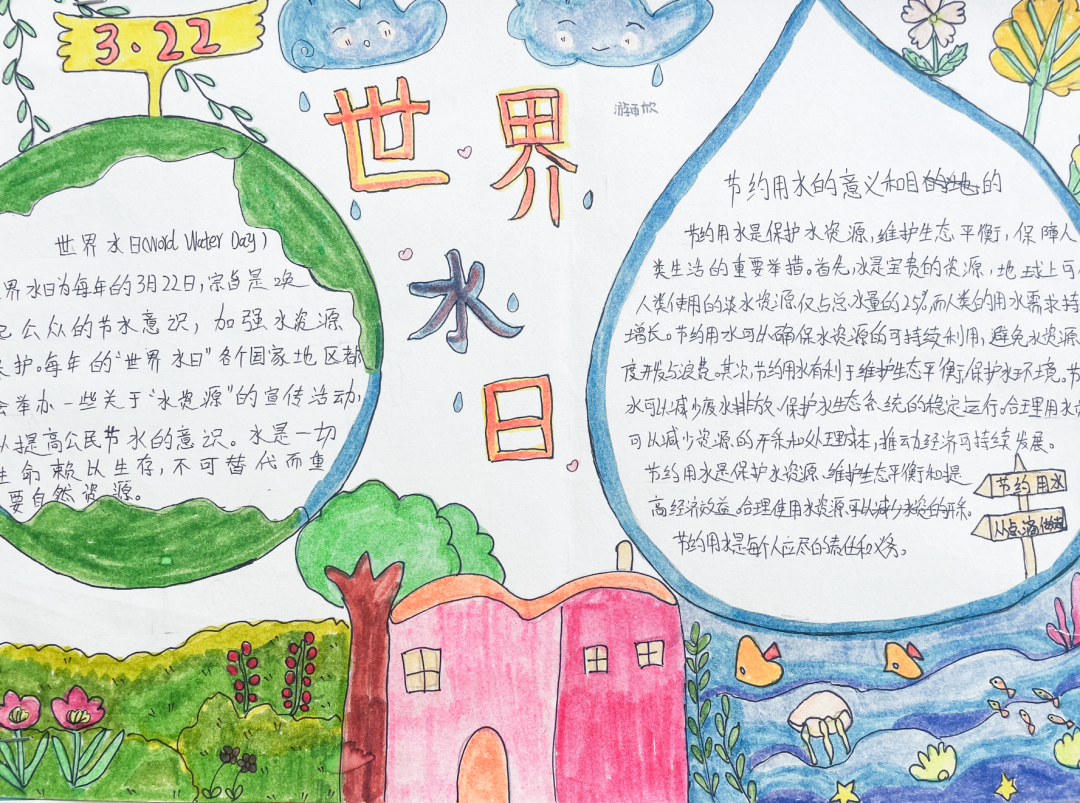 3.22
世界
水
日
世界水日(Word Water Day)
界水日为每年的3月22日,宗旨是唤
起公众的节水意识,加强水资源
保护。每年的“世界水日”各个国家地区都
会举办一些关于“水资源”的宣传活动,
以提高公民节水的意识。水是一切
生命赖以生存,不可替代而重
要自然资源。
节约用水的意义和目的
节约用水是保护水资源,维护生态平衡,保障人
类生活的重要举措。首先,水是宝贵的资源,地球上可
人类使用的淡水资源仅占总水量的2.5%,而人类的用水需求持
增长。节约用水可以确保水资源的可持续利用,避免水资源
度开发与浪费。其次,节约用水有利于维护生态平衡,保护水环境。节
水可以减少废水排放、保护水生态系统的稳定运行。合理用水
可以减少资源的开采和处理成本,推动经济可持续发展。
节约用水是保护水资源、维护生态平衡和提
高经济效益。合理使用水资源可以减少水资的开采。
节约用水是每个人应尽的责任和义务。
节约用水
从点滴做起